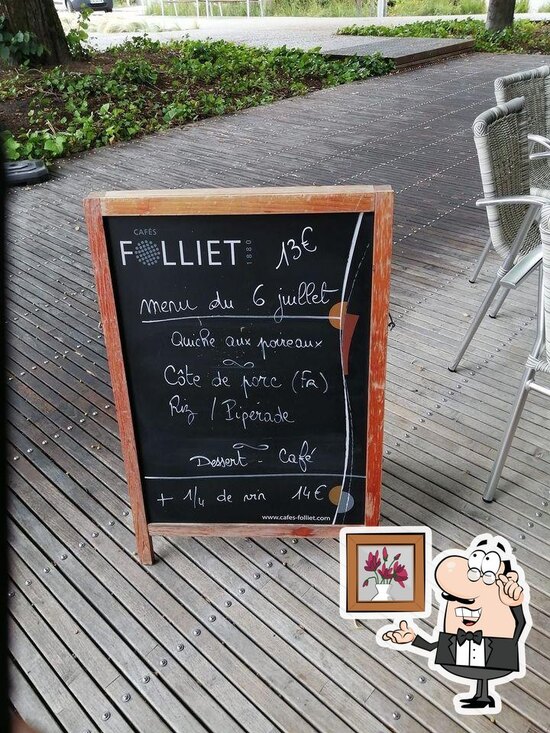 CAFÉS
FOLLIET 1880
13€
menu du 6 juillet
Quiche aux poireaux
Côte de porc (FR)
Riz / Piperade
Dessert - Café
+ 1/4 de vin 14€
www.cafes-folliet.com